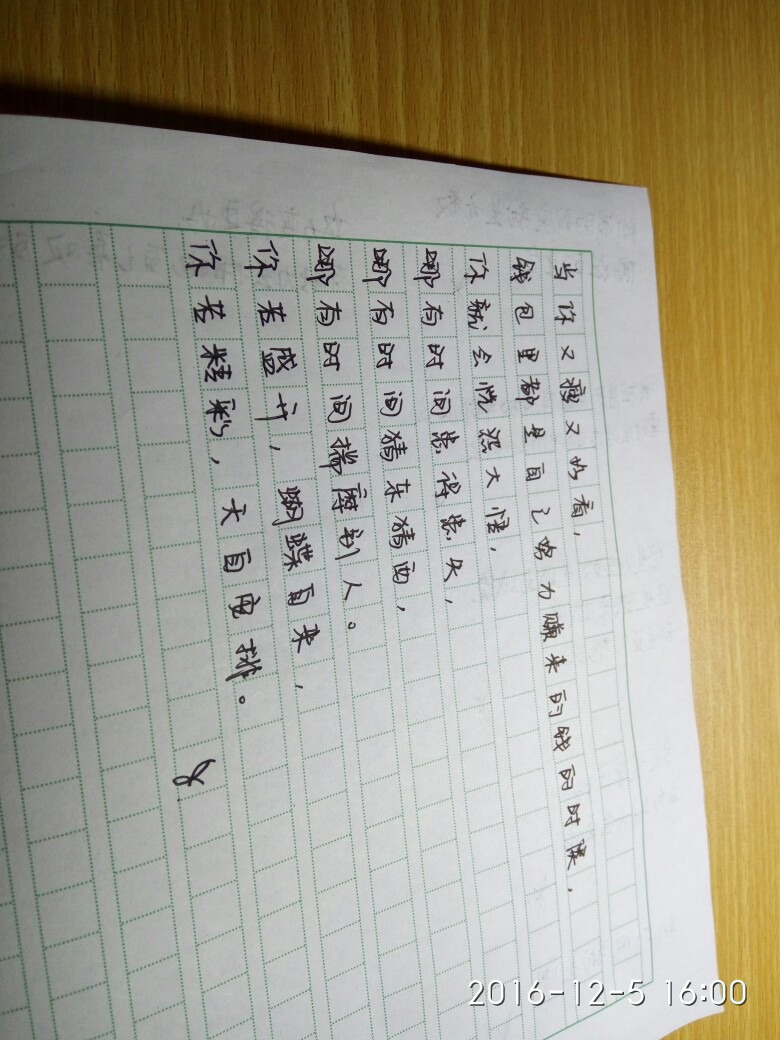 当你又瘦又好看，
钱包里都是自己努力赚来的钱的时候，
你就会恍然大悟，
哪有时间患得患失，
哪有时间猜东猜西，
哪有时间揣摩别人。
你若盛开，蝴蝶自来，
你若精彩，天自安排。
y
2016-12-5 16:00